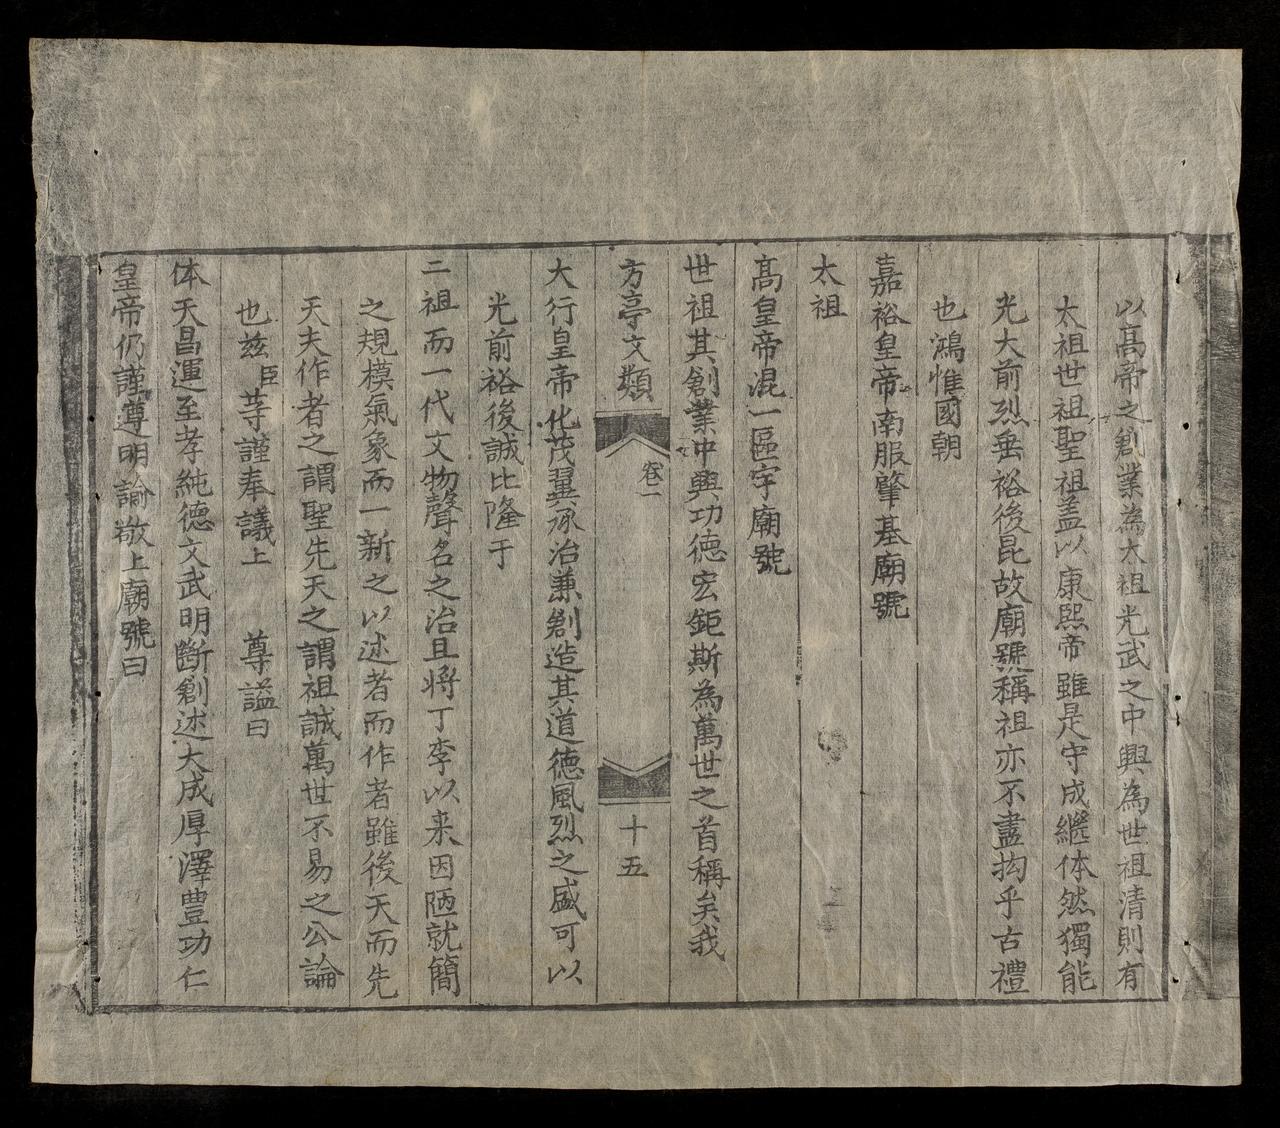 以高帝之創業為太祖光武之中興為世祖清則有
太祖世祖聖祖盖以康熙帝雖是守成繼体然獨能
光大前烈垂裕後昆故廟號稱祖亦不盡拘乎古禮
也鴻惟國朝
嘉裕皇帝南服肇基廟號
太祖
高皇帝混一區宇廟號
世祖其創業中興功德宏鉅斯為萬世之首稱矣我
方亭文類
卷一
十五
大行皇帝化茂翼承治兼創造其道德風烈之盛可以
光前裕後誠比隆于
二祖而一代文物聲名之治且將丁李以来因陋就簡
之規模氣象而一新之以述者而作者雖後天而先
天夫作者之謂聖先天之謂祖誠萬世不易之公論
也兹臣等謹奉議上 尊謚曰
体天昌運至孝純德文武明斷創述大成厚澤豊功仁
皇帝仍謹遵明諭敬上廟號曰